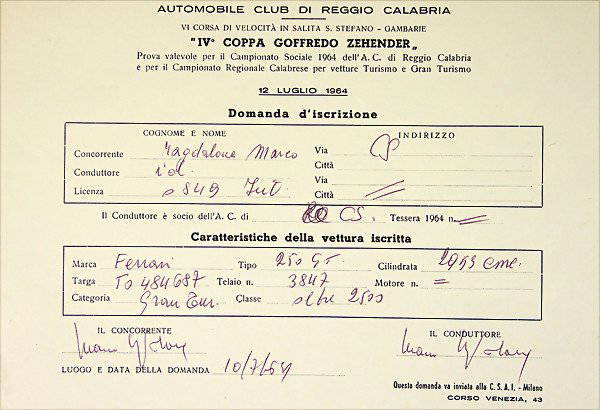 AUTOMOBILE CLUB DI REGGIO CALABRIA
VI CORSA DI VELOCITÀ IN SALITA S. STEFANO - GAMBARIE
"IVª COPPA GOFFREDO ZEHENDER„
Prova valevole per il Campionato Sociale 1964 dell'A. C. di Reggio Calabria
e per il Campionato Regionale Calabrese per vetture Turismo e Gran Turismo
12 LUGLIO 1964
Domanda d'iscrizione
COGNOME E NOME INDIRIZZO
Concorrente Magdalone Marco Via
Città
Conduttore id. Via
Licenza 0849 Int. Città
Il Conduttore è socio dell'A. C. di CS. Tessera 1964 n. =
Caratteristiche della vettura iscritta
Marca Ferrari Tipo 250 GT. Cilindrata 2953 cmc.
Targa TO 484687 Telaio n. 3847 Motore n. =
Categoria Gran Tur. Classe oltre 2500
IL CONCORRENTE IL CONDUTTORE
LUOGO E DATA DELLA DOMANDA 10/7/64
Questa domanda va inviata alla C. S. A. I. - Milano
CORSO VENEZIA, 43